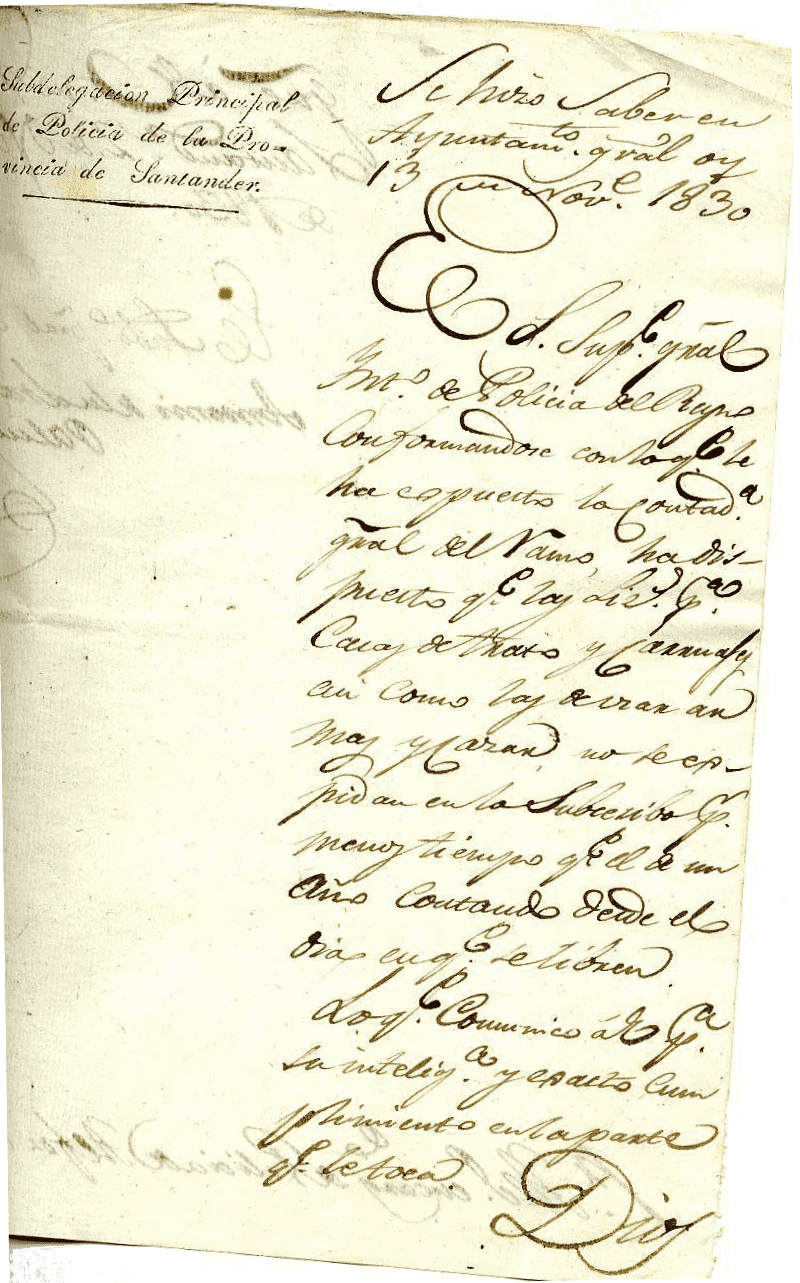 Subdelegacion Principal
de Policia de la Pro-
vincia de Santander.
Se hizo Saber en
Ayuntam.to gral oy
13 de Nov.e 1830
El S. Sup.e gral
Int.o de Policia del Reyno
Conformandose con lo q.e le
ha espuesto la Contad.a
gral del Ramo, ha dis-
puesto q.e las Liz.s p.a
Casas de trato y Carruages
asi como las de usar ar
mas y Cazar, no se es-
pidan en lo Subcesibo p.r
menos tiempo q.e el de un
año Contando desde el
dia en q.e se libren.
Lo q.e Comunico á V p.a
su intelig.a y esacto Cum
plimiento en la parte
q.e le toca.
Dios